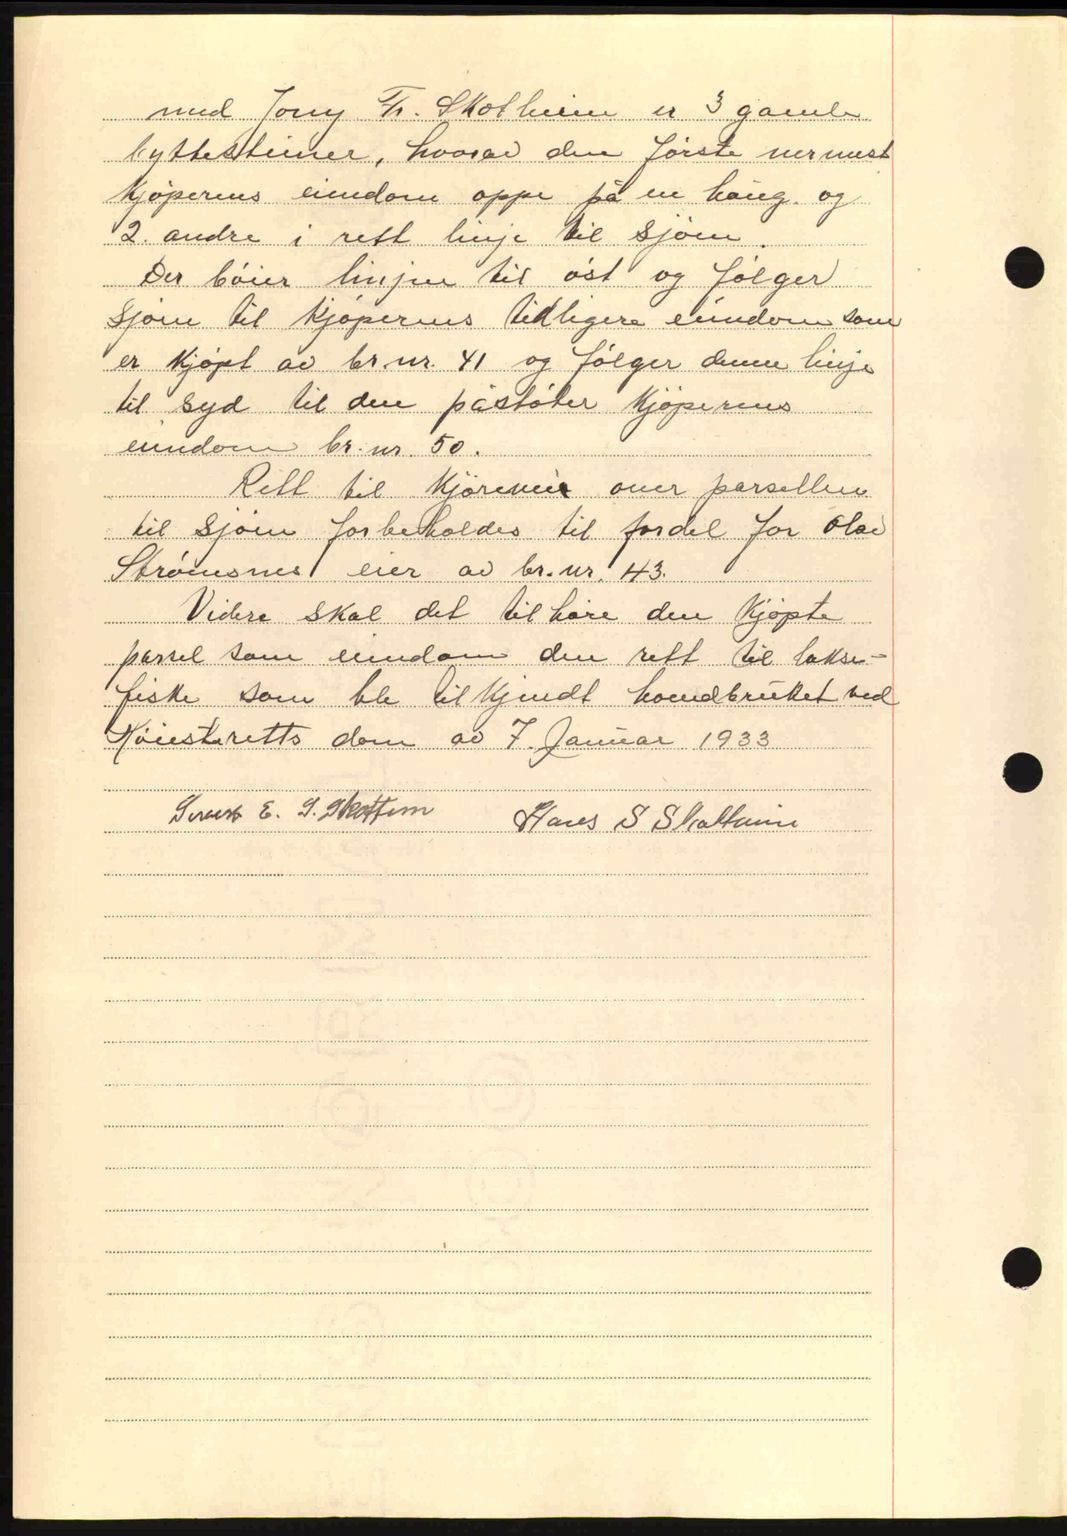 med Jony Fr. Skotheim er 3 gamle
byttesteiner, hvorav den første nermest
kjøperens eiendom oppe på en haug og
2. andre i rett linje til sjøen.
Der bøier linjen til øst og følger
sjøen til kjøperens tidligere eiendom som
er kjøpt av br.nr. 41 og følger denne linje
til syd til den påstøter kjøperens
eiendom br.nr. 50.
Rett til kjørevei over parsellen
til sjøen forbeholdes til fordel for Olav
Strømsnes eier av br.nr. 43.
Videre skal det tilhøre den kjøpte
parsel som eiendom den rett til lakse-
fiske som ble tilkjendt hovedbruket ved
Høiesteretts dom av 7. Januar 1933
E. S. Skottem Hans S Skotheim